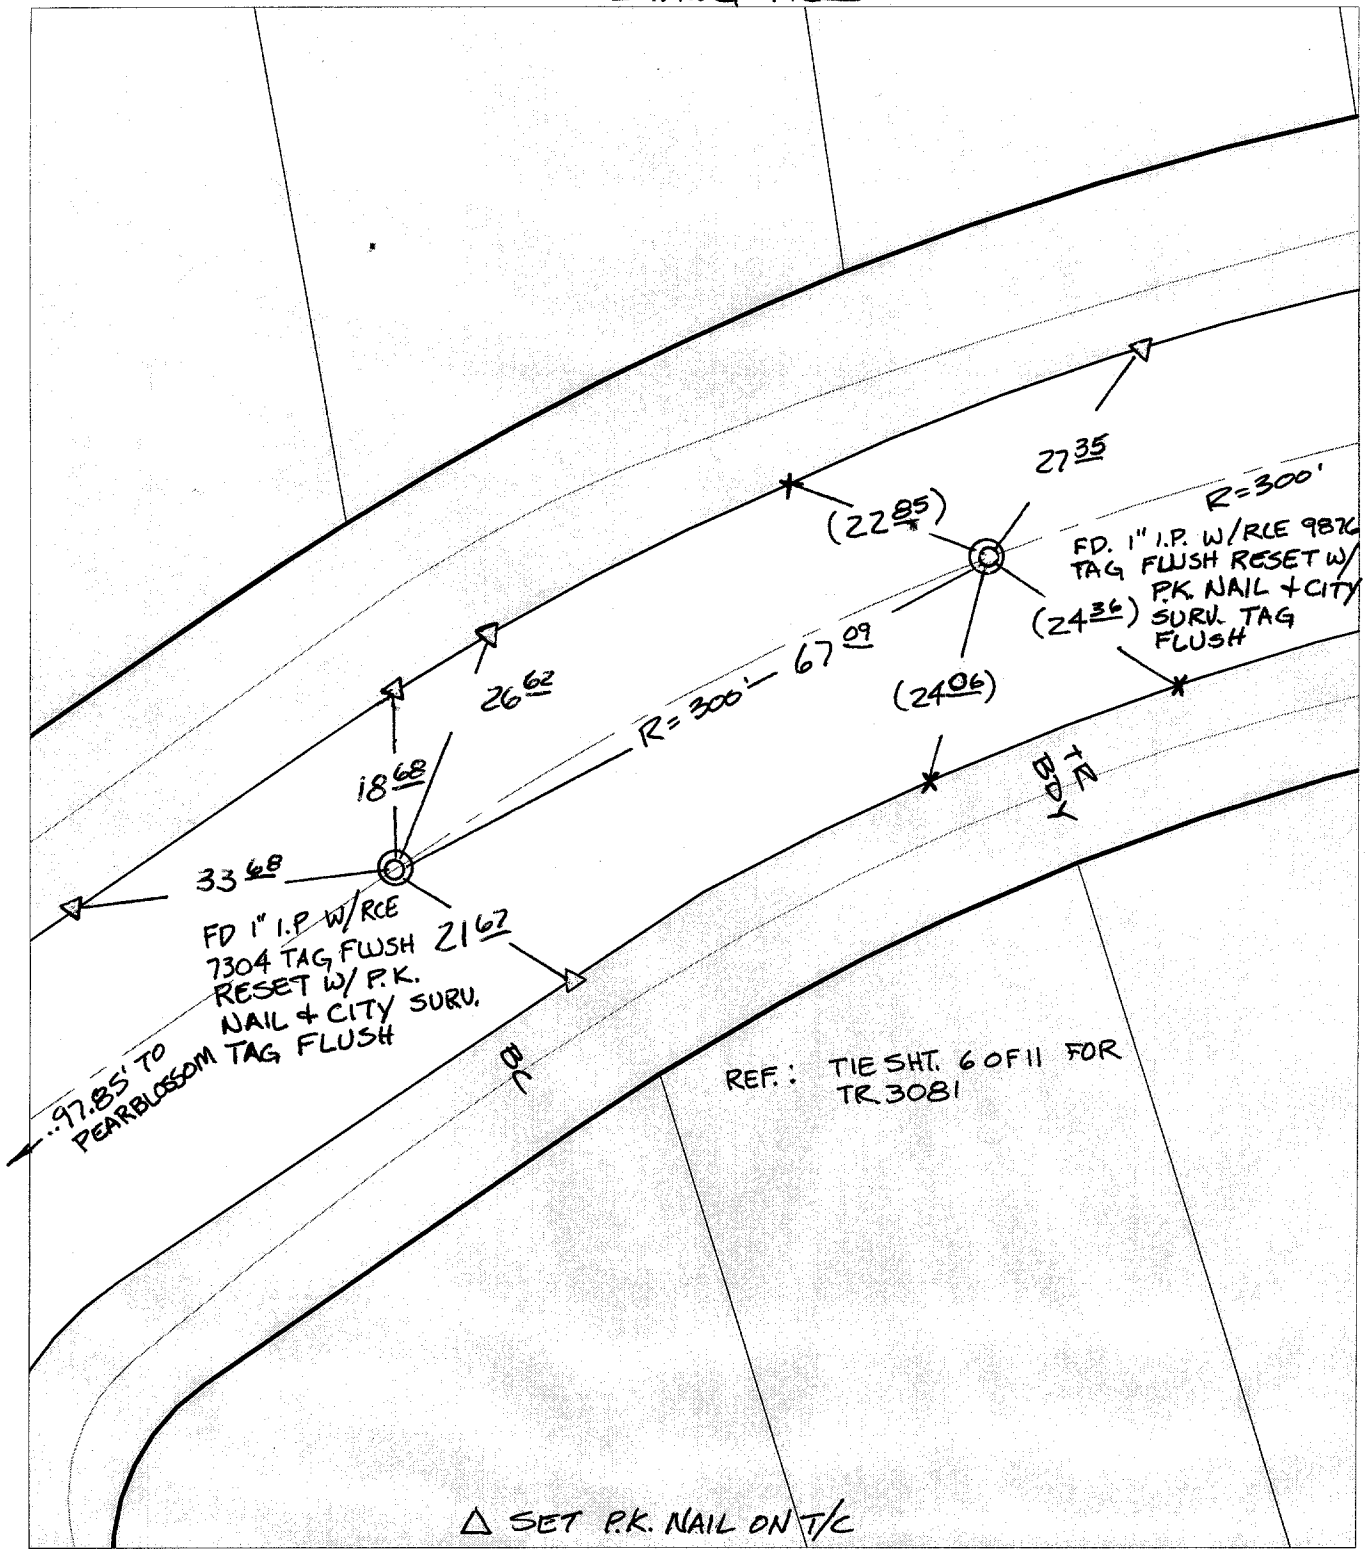 27 35
(22 85)
R=300'
FD. 1" I.P. W/RCE 9876
TAG FLUSH RESET W/
P.K. NAIL & CITY
SURV. TAG
FLUSH
(24 36)
67 09
26 62
(24 06)
R=300'
18 68
TR
BDY
33 68
FD 1" I.P W/RCE
7304 TAG FLUSH
RESET W/ P.K.
NAIL & CITY SURV.
TAG FLUSH
21 67
BC
97.85' TO
PEARBLOSSOM
REF.: TIE SHT. 6 OF 11 FOR
TR.3081
△ SET P.K. NAIL ON T/C